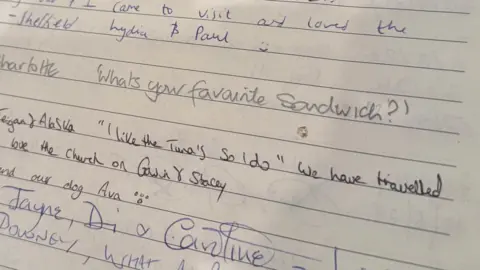 & I came to visit and loved the
- Sheffield Lydia & Paul
Charlotte Whats your favourite Sandwich?!
Teigan & Alaska "I like the Tuna's So I do" We have travelled
love the church on Gavin & Stacey
and our dog Ava
Jayne, Di & Caroline
DOWNEY, WHAT